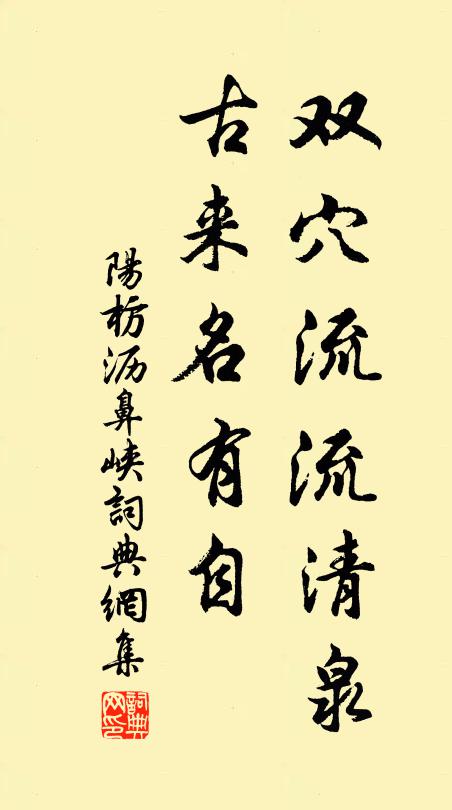 双穴流流清泉
古来名有自
陽枋沥鼻峡詞典網集
詞典網印